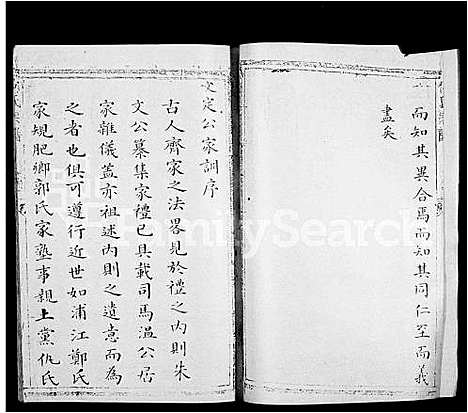 而知其異合焉而知其同仁至而義
盡矣
文定公家訓序
古人齊家之法畧見於禮之內則朱
文公纂集家禮已具載司馬溫公居
家雜儀盖亦祖述內則之遺意而為
之者也俱可遵行近世如浦江鄭氏
家規肥鄉郭氏家塾事親上黨仇氏
FamilySearch